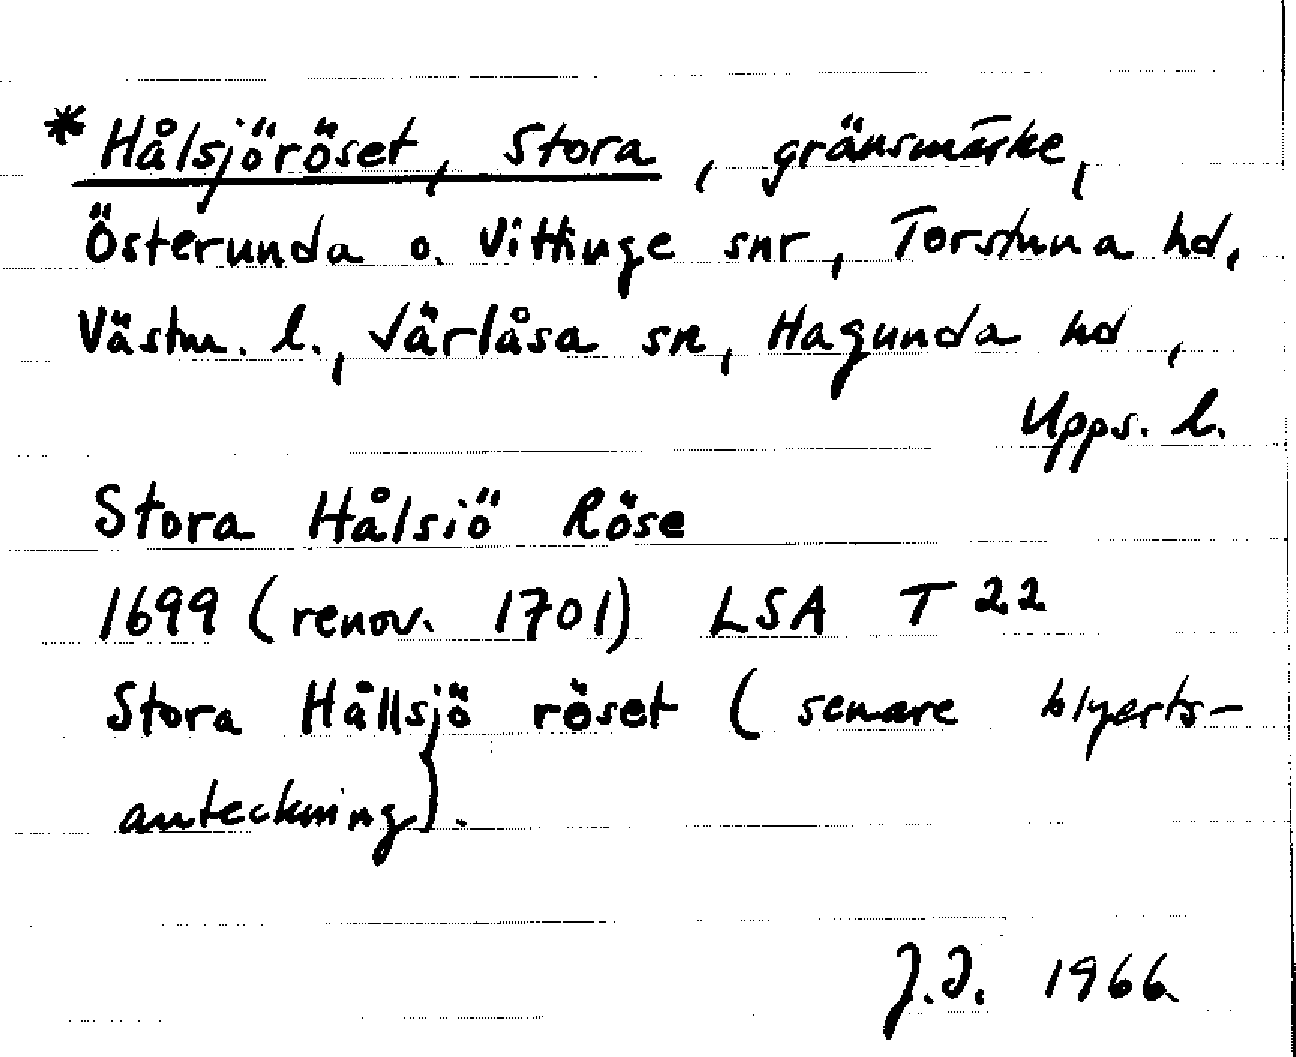 * Hålsjöröset, Stora, gränsmärke,
Österunda o. Vittinge snr, Torstuna hd,
Västm. l., Järlåsa sn, Hagunda hd,
Upps. l.
Stora Hålsiö Röse
1699 (renov. 1701) LSA T 22
Stora Hållsjö röset (senare blyerts-
anteckning).
J.J. 1966